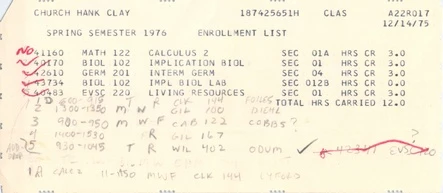 CHURCH HANK CLAY 187425651H CLAS A22R017
12/14/75
SPRING SEMESTER 1976 ENROLLMENT LIST
NO 41160 MATH 122 CALCULUS 2 SEC 01A HRS CR 3.0
40170 BIOL 102 IMPLICATION BIOL SEC 01 HRS CR 3.0
42610 GERM 201 INTERM GERM SEC 04 HRS CR 3.0
43734 BIOL 104 IMPL BIOL LAB SEC 012B HRS CR 0.0
40483 EVSC 220 LIVING RESOURCES SEC 01 HRS CR 3.0
TOTAL HRS CARRIED 12.0
1 T R CLK 144
2 M W GIL 700 DIEHL
3 900-950 M W F CAB 122 COBBS?
4 1400-1530 R GIL 167
5 930-1045 T R WIL 402 ODUM
CALC 2 11-1150 MWF CLK 144